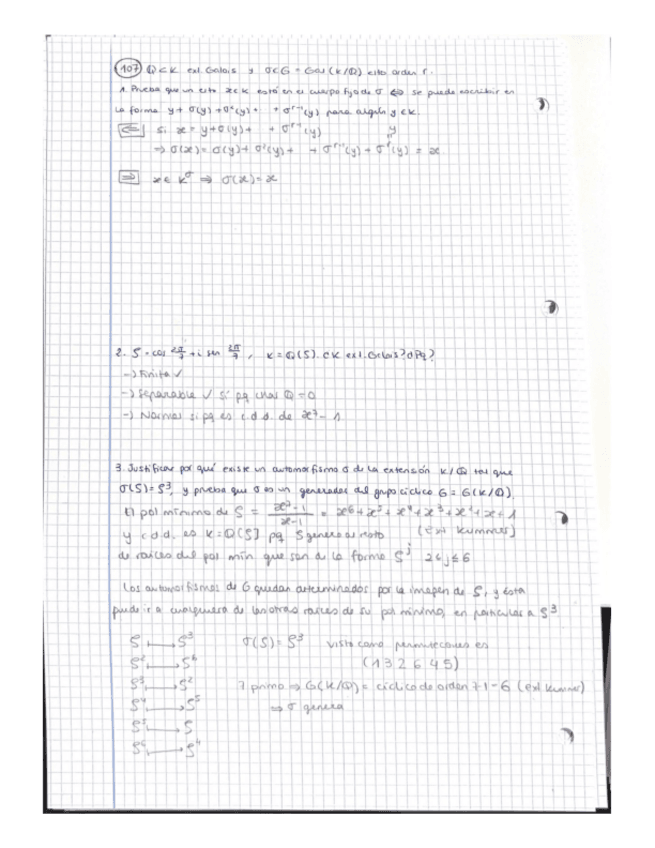 107 Q<K ext Galois y σ∈G = Gal (K/Q) elto orden r.
1. Prueba que un elto x∈K está en el cuerpo fijo de σ ⇔ se puede escribir en
la forma y + σ(y) + σ²(y) + + σ^{r-1}(y) para algún y∈K.
⇐ si x = y+σ(y)+ + σ^{r-1}(y) y
⇒ σ(x) = σ(y)+ σ²(y)+ + σ^{r-1}(y) + σ^r(y) = x
⇒ x∈ K^σ ⇒ σ(x)=x
2. ζ = cos 2π/7 + i sen 2π/7, K=Q(ζ). ¿K ext. Galois? ¿Pq?
→ Finita ✓
→ Separable ✓ si pq char Q = 0
→ Normal si pq es c.d.d. de x⁷ - 1
3. Justificar por qué existe un automorfismo σ de la extensión K/Q tal que
σ(ζ)= ζ³, y prueba que σ es un generador del grupo cíclico G = G(K/Q).
El pol mínimo de ζ = x⁷-1 / x-1 = x⁶+x⁵+x⁴+x³+x²+x+1
y c.d.d. es K=Q[ζ] pq ζ genera al resto (ext kummer)
de raíces del pol mín que son de la forma ζ^j 2≤j≤6
Los automorfismos de G quedan determinados por la imagen de ζ, y ésta
puede ir a cualquiera de las otras raíces de su pol mínimo, en particular a ζ³
ζ ⟼ ζ³ σ(ζ) = ζ³ visto como permutaciones es
ζ² ⟼ ζ⁶ (1 3 2 6 4 5)
ζ³ ⟼ ζ² 7 primo ⇒ G(K/Q) = cíclico de orden 7-1=6 (ext kummer)
ζ⁴ ⟼ ζ⁵ ⇒ σ genera
ζ⁵ ⟼ ζ
ζ⁶ ⟼ ζ⁴